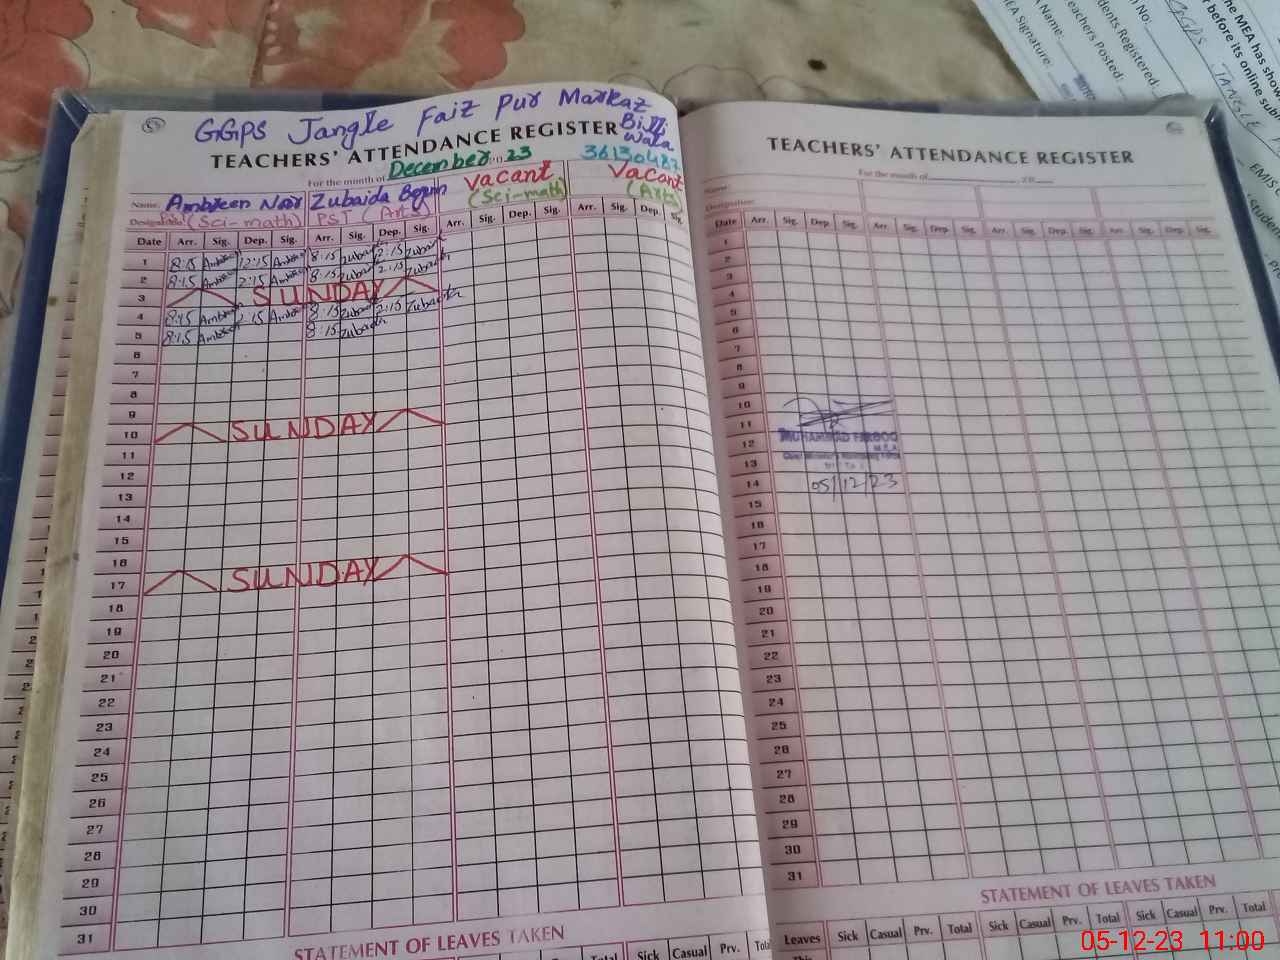 GGPS Jangle Faiz Pur Markaz
Billi
wala
TEACHERS' ATTENDANCE REGISTER
For the month of December 2023
36130487
Name: Ambreen Naz Zubaida Begum Vacant Vacant
Designation (Sci-math) PST (Arts) (Sci-math) (Arts)
Date Arr. Sig. Dep. Sig. Arr. Sig. Dep. Sig. Arr. Sig. Dep. Sig. Arr. Sig. Dep. Sig.
1 8:15 Ambreen 12:15 Ambreen 8:15 Zubaida 12:15 Zubaida
2 8:15 Ambreen 2:15 Ambreen 8:15 Zubaida 2:15 Zubaida
3 SUNDAY
4 8:15 Ambreen 2:15 Ambreen 8:15 Zubaida 2:15 Zubaida
5 8:15 Ambreen 8:15 Zubaida
6
7
8
9
10 SUNDAY
11
12
13
14
15
16
17 SUNDAY
18
19
20
21
22
23
24
25
26
27
28
29
30
31
STATEMENT OF LEAVES TAKEN
Sick Casual Prv. Total
TEACHERS' ATTENDANCE REGISTER
For the month of 20
Name:
Designation:
Date Arr. Sig. Dep Sig. Arr. Sig. Dep Sig. Arr. Sig. Dep Sig. Arr. Sig. Dep Sig.
1
2
3
4
5
6
7
8
9
10
11
12
13
14
15
16
17
18
19
20
21
22
23
24
25
26
27
28
29
30
31
MUHAMMAD FAROOQ
M.E.A
05/12/23
STATEMENT OF LEAVES TAKEN
Leaves Sick Casual Prv. Total Sick Casual Prv. Total
This
MEA Signature:
MEA Name:
Teachers Posted:
Students Registered:
GGPS
JANGLE
the MEA has show
before its online sub
EMIS
05-12-23 11:00